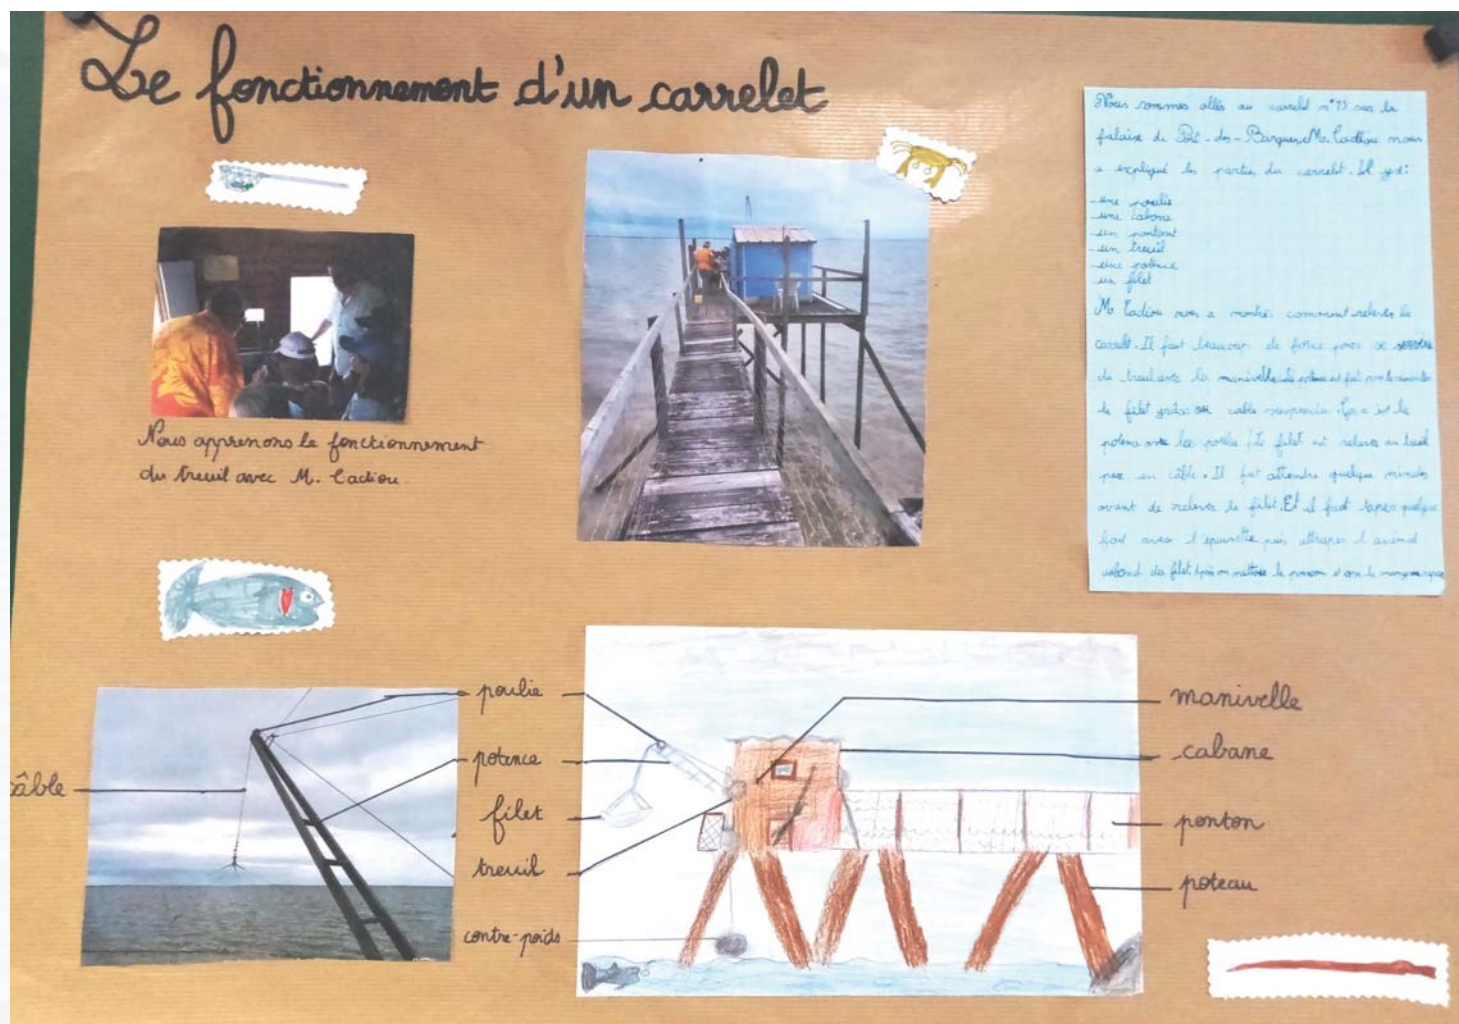 Le fonctionnement d'un carrelet
Nous apprenons le fonctionnement
du treuil avec M. Cadiou.
Nous sommes allés au carrelet n°73 sur la
falaise de Port-des-Barques. M. Cadiou nous
a expliqué les parties du carrelet. Il y a:
-une poulie
-une cabane
-un pontont
-un treuil
-une potence
un filet
M. Cadiou nous a montré comment relever le
carrelet. Il faut beaucoup de force pour se servire
du treuil avec la manivelle. La potence est
le filet grâce au câble
potence avec les poulie. Le filet est relever au treuil
par un câble. Il faut attendre quelque minutes
avant de relever le filet. Et il faut taper quelque
foix avec l'épuisette puis attraper l'animal
du filet. le poisson et on le mange
câble
poulie
potence
filet
treuil
contre-poids
manivelle
cabane
ponton
poteau